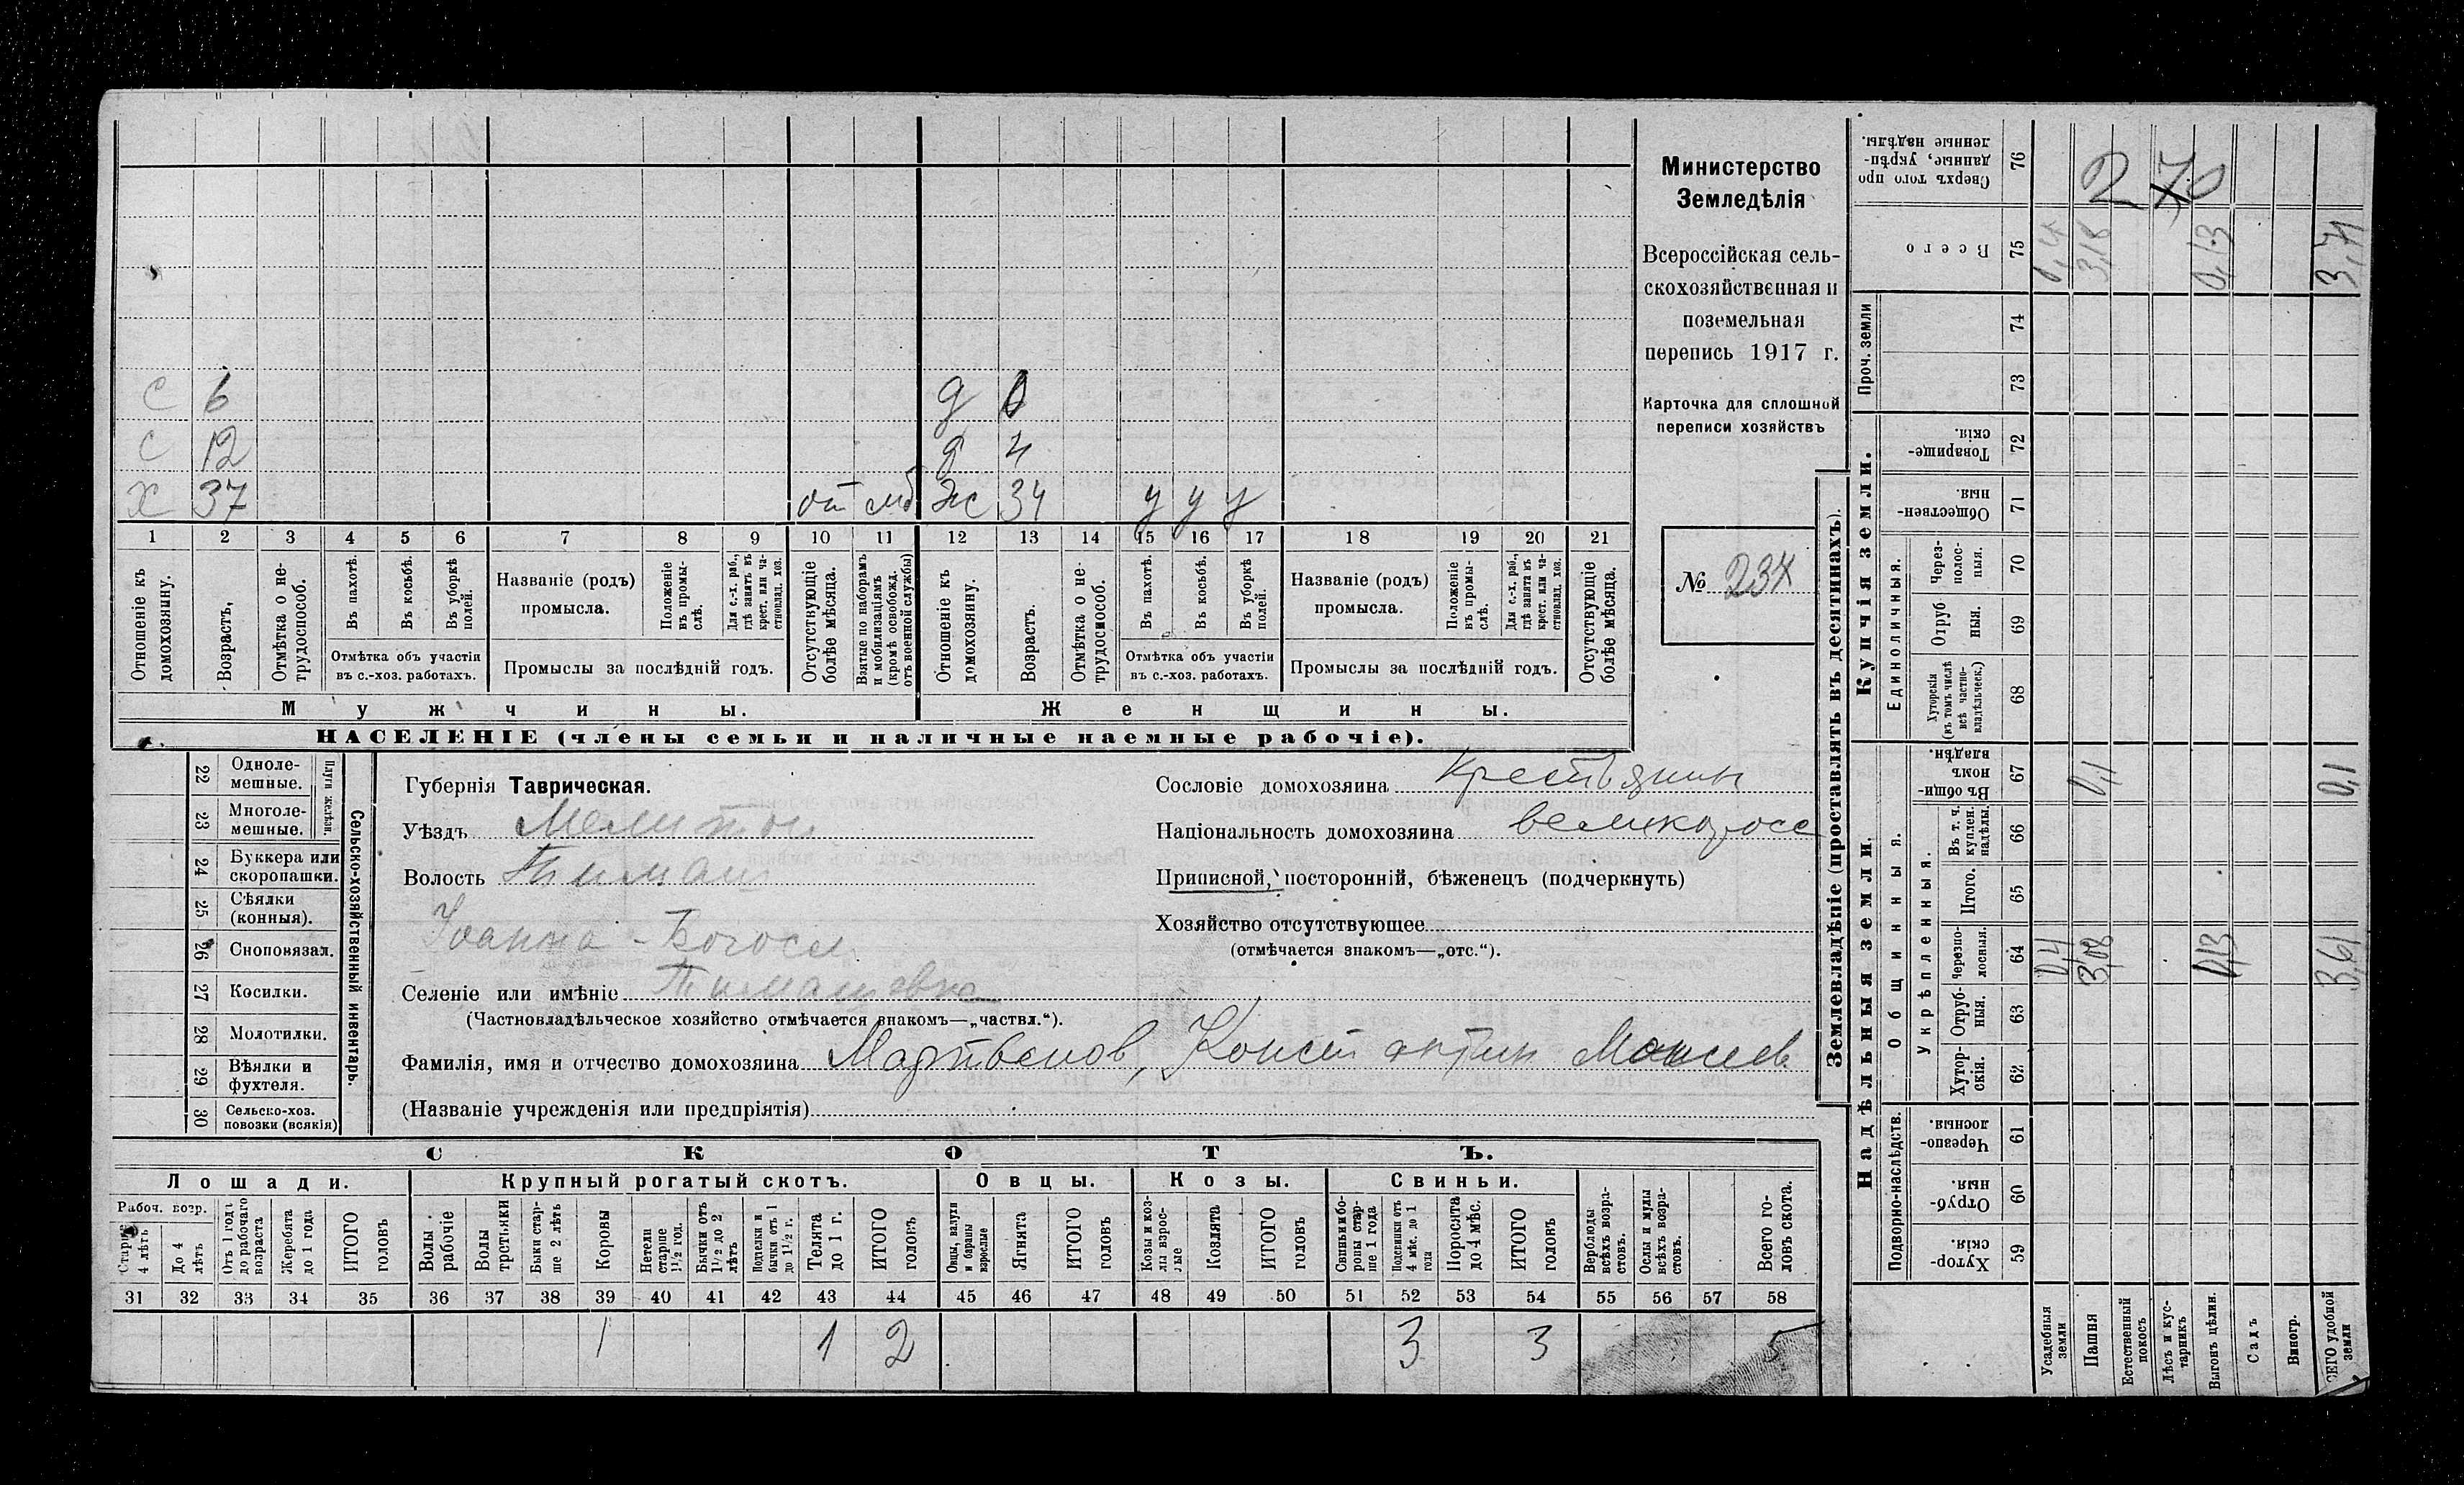 Министерство
Земледѣлія
Всероссійская сель-
скохозяйственная и
поземельная
перепись 1917 г.
Карточка для сплошной
переписи хозяйствъ
№ 237
С 6 д
С 12 д 4
Х 37 от мб ж 34 у у у
1 2 3 4 5 6 7 8 9 10 11 12 13 14 15 16 17 18 19 20 21
Отношеніе къ домохозяину.
Возрастъ,
Отмѣтка о не-трудоспособ.
Въ пахотѣ.
Въ косьбѣ.
Въ уборкѣ полей.
Отмѣтка объ участіи
въ с.-хоз. работахъ.
Названіе (родъ)
промысла.
Положеніе въ промы-слѣ.
Для с.-х. раб., гдѣ занятъ въ крест. или ча-стновлад. хоз.
Промыслы за послѣдній годъ.
Отсутствующіе болѣе мѣсяца.
Взятые по наборамъ и мобилизаціямъ (кромѣ освобожд. отъ военной службы)
Отношеніе къ домохозяину.
Возрастъ.
Отмѣтка о не-трудоспособ.
Въ пахотѣ.
Въ косьбѣ.
Въ уборкѣ полей.
Отмѣтка объ участіи
въ с.-хоз. работахъ.
Названіе (родъ)
промысла.
Положеніе въ промы-слѣ.
Для с.-х. раб., гдѣ занята въ крест. или ча-стновлад. хоз.
Промыслы за послѣдній годъ.
Отсутствующіе болѣе мѣсяца.
Мужчины. Женщины.
НАСЕЛЕНІЕ (члены семьи и наличные наемные рабочіе).
Сельско-хозяйственный инвентарь.
Плуги желѣзн.
22 Одноле-мешные.
23 Многоле-мешные.
24 Буккера или скоропашки.
25 Сѣялки (конныя).
26 Сноповязал.
27 Косилки.
28 Молотилки.
29 Вѣялки и фухтеля.
30 Сельско-хоз. повозки (всякія)
Губернія Таврическая.
Уѣздъ Мелитоп
Волость Тимаш
Іоанна-Богосл.
Селеніе или имѣніе Тимашевка
(Частновладѣльческое хозяйство отмѣчается знакомъ—„частвл.“).
Фамилія, имя и отчество домохозяина Мартвенов, Константин Моисеев
(Названіе учрежденія или предпріятія)
Сословіе домохозяина крестьянин
Національность домохозяина великоросс
Приписной, посторонній, бѣженецъ (подчеркнуть)
Хозяйство отсутствующее
(отмѣчается знакомъ—„отс.“).
СКОТЪ.
Лошади. Крупный рогатый скотъ. Овцы. Козы. Свиньи.
Рабоч. возр.
Старше 4 лѣтъ
До 4 лѣтъ
Отъ 1 года до рабочаго возраста
Жеребята до 1 года
ИТОГО головъ
Волы рабочіе
Волы третьяки
Быки стар-ше 2 лѣтъ
Коровы
Нетели старше 1½ год.
Бычки отъ 1½ до 2 лѣтъ
Подтелки и бычки отъ 1 до 1½ г.
Телята до 1 г.
ИТОГО головъ
Овцы, валухи и бараны взрослые
Ягнята
ИТОГО головъ
Козы и коз-лы взрос-лые
Козлята
ИТОГО головъ
Свиньи и бо-ровы стар-ше 1 года
Подсвинки отъ 4 мѣс. до 1 года
Поросята до 4 мѣс.
ИТОГО головъ
Верблюды всѣхъ возра-стовъ.
Ослы и мулы всѣхъ возра-стовъ.
Всего го-ловъ скота.
31 32 33 34 35 36 37 38 39 40 41 42 43 44 45 46 47 48 49 50 51 52 53 54 55 56 57 58
1 1 2 3 3 5
Землевладѣніе (проставлять въ десятинахъ).
Купчія земли.
Надѣльныя земли.
Сверхъ того про-данные, укрѣп-ленные надѣлы. 76 2 70
Всего 75 0,4 3,18 0,13 3,71
Проч. земли 74
73
Товарище-скія. 72
Обществен-ныя. 71
Единоличныя.
Через-полос-ныя. 70
Отруб-ныя. 69
Хуторскія (въ томъ числѣ всѣ частно-владѣльческ.) 68
Общинныя.
Въ общин-номъ владѣн. 67 0,1 0,1
Укрѣпленныя.
Въ т. ч. куплен. надѣлы. 66
Итого. 65
Черезпо-лосныя. 64 0,4 3,08 0,13 3,61
Отруб-ныя. 63
Хутор-скія. 62
Подворно-наслѣдств.
Черезпо-лосныя. 61
Отруб-ныя. 60
Хутор-скія. 59
Усадебныя земли
Пашня
Естественный покосъ
Лѣсъ и кус-тарникъ
Выгонъ цѣлин.
Садъ
Виногр.
ВСЕГО удобной земли